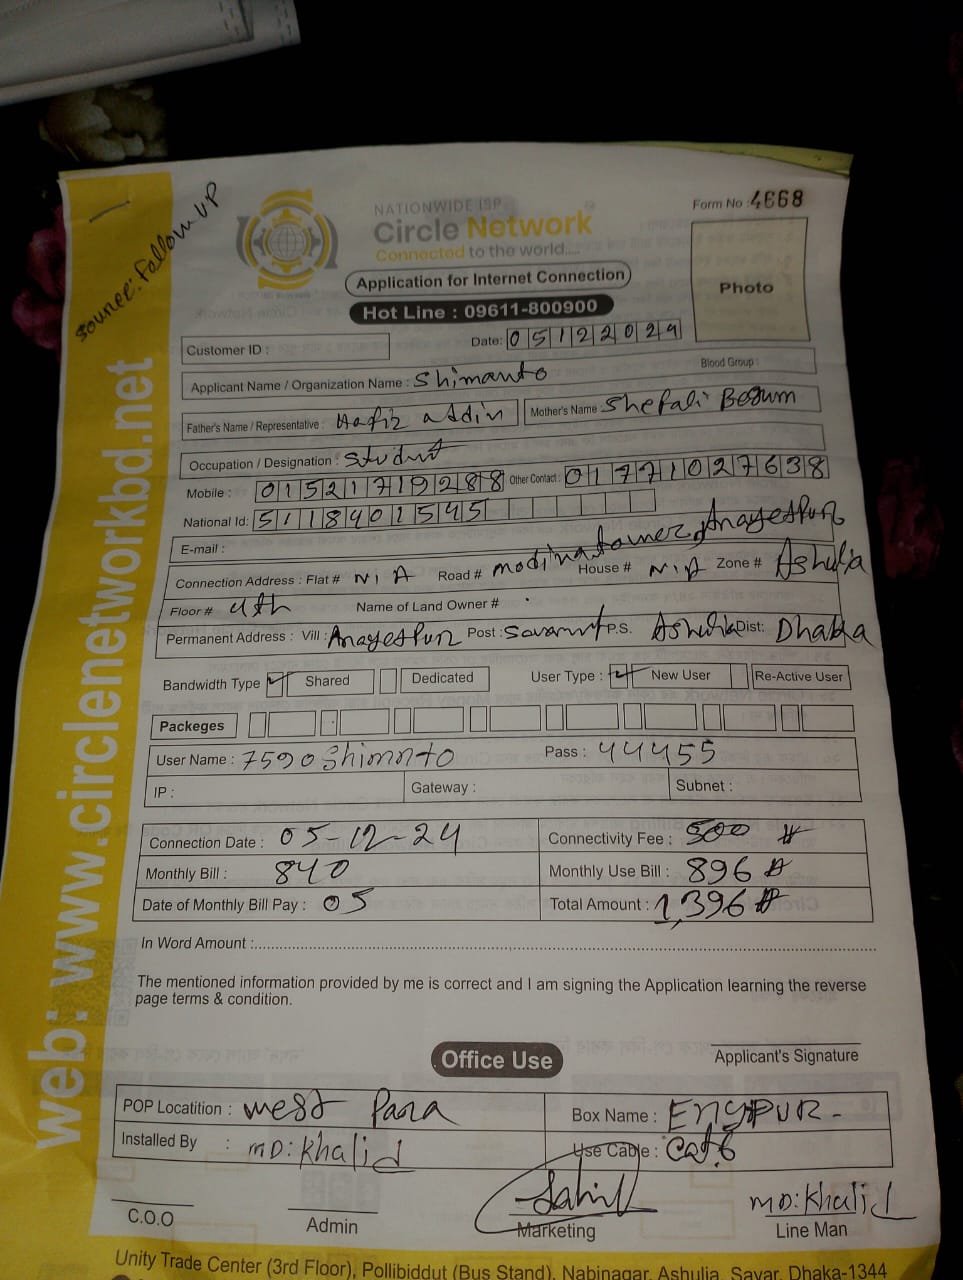 Source: Follow UP
NATIONWIDE ISP
Circle Network
Connected to the world.....
Form No : 4668
Application for Internet Connection
Photo
Hot Line : 09611-800900
Customer ID :
Date: 05122024
Blood Group :
Applicant Name / Organization Name : Shimanto
Father's Name / Representative : Hafiz uddin Mother's Name Shefali Begum
Occupation / Designation : Student
Mobile : 01521719288 Other Contact : 01771027638
National Id: 5118401545
E-mail :
Connection Address : Flat # N/A Road # modina tower, Anayetpur House # N/A Zone # Ashulia
Floor # 4th Name of Land Owner #
Permanent Address : Vill : Anayetpur Post : P.S. Ashulia Dist: Dhaka
Bandwidth Type Shared Dedicated User Type : New User Re-Active User
Packeges
User Name : 7590Shimnto Pass : 44455
IP : Gateway : Subnet :
Connection Date : 05-12-24 Connectivity Fee : 500
Monthly Bill : 840 Monthly Use Bill : 896
Date of Monthly Bill Pay : 05 Total Amount : 1,396
In Word Amount :
The mentioned information provided by me is correct and I am signing the Application learning the reverse
page terms & condition.
Applicant's Signature
Office Use
POP Locatition : West Para Box Name : ENYPUR-
Installed By : MD: Khalid Use Cable : Cat.6
MD: Khalid
C.O.O Admin Marketing Line Man
Unity Trade Center (3rd Floor), Pollibiddut (Bus Stand), Nabinagar, Ashulia, Savar, Dhaka-1344
web: www.circlenetworkbd.net